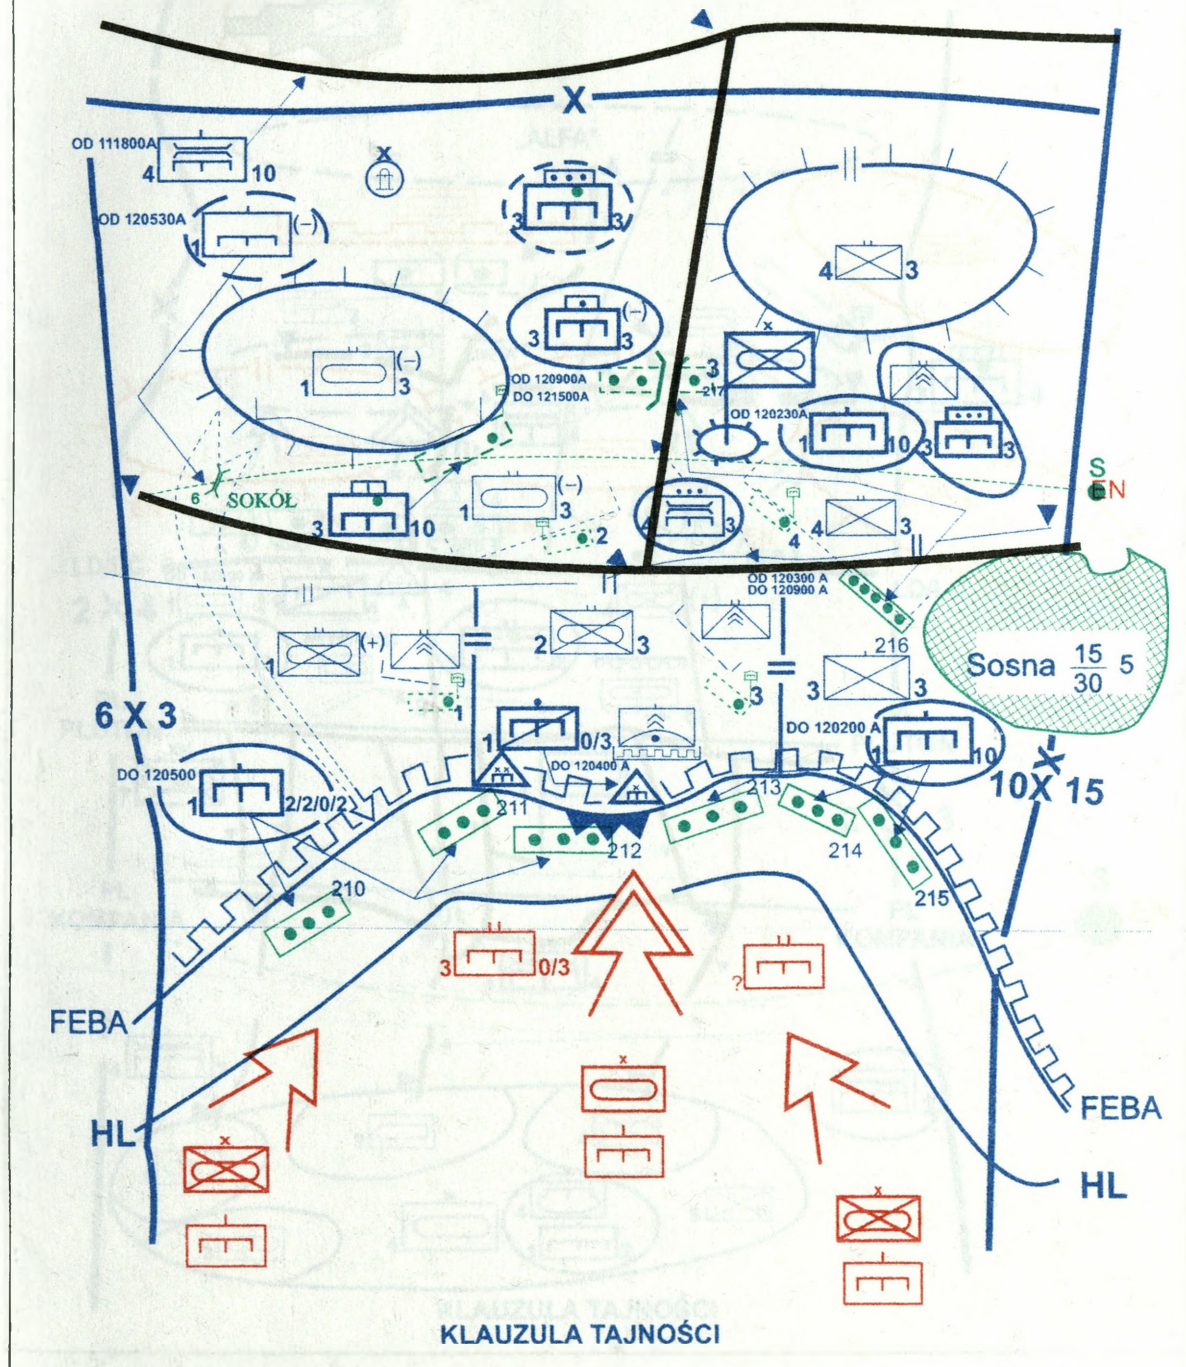 X
OD 111800A
4 10
x
OD 120530A
1 (–)
3 3
4 3
1 (–) 3
3 (–) 3
OD 120900A
DO 121500A
3
217
x
OD 120230A
1 10
3 3
6
SOKÓŁ
3 10
1 (–) 3
2
4 3
4
4 3
S
EN
OD 120300 A
DO 120900 A
216
Sosna 15/30 5
1 (+)
2 3
3 3
1
3
6 X 3
1 0/3
DO 120400 A
DO 120200 A
1 10
X
10X 15
DO 120500
1 2/2/0/2
211
213
212
214
210
215
3 0/3
?
FEBA
HL
x
x
x
FEBA
HL
KLAUZULA TAJNOŚCI